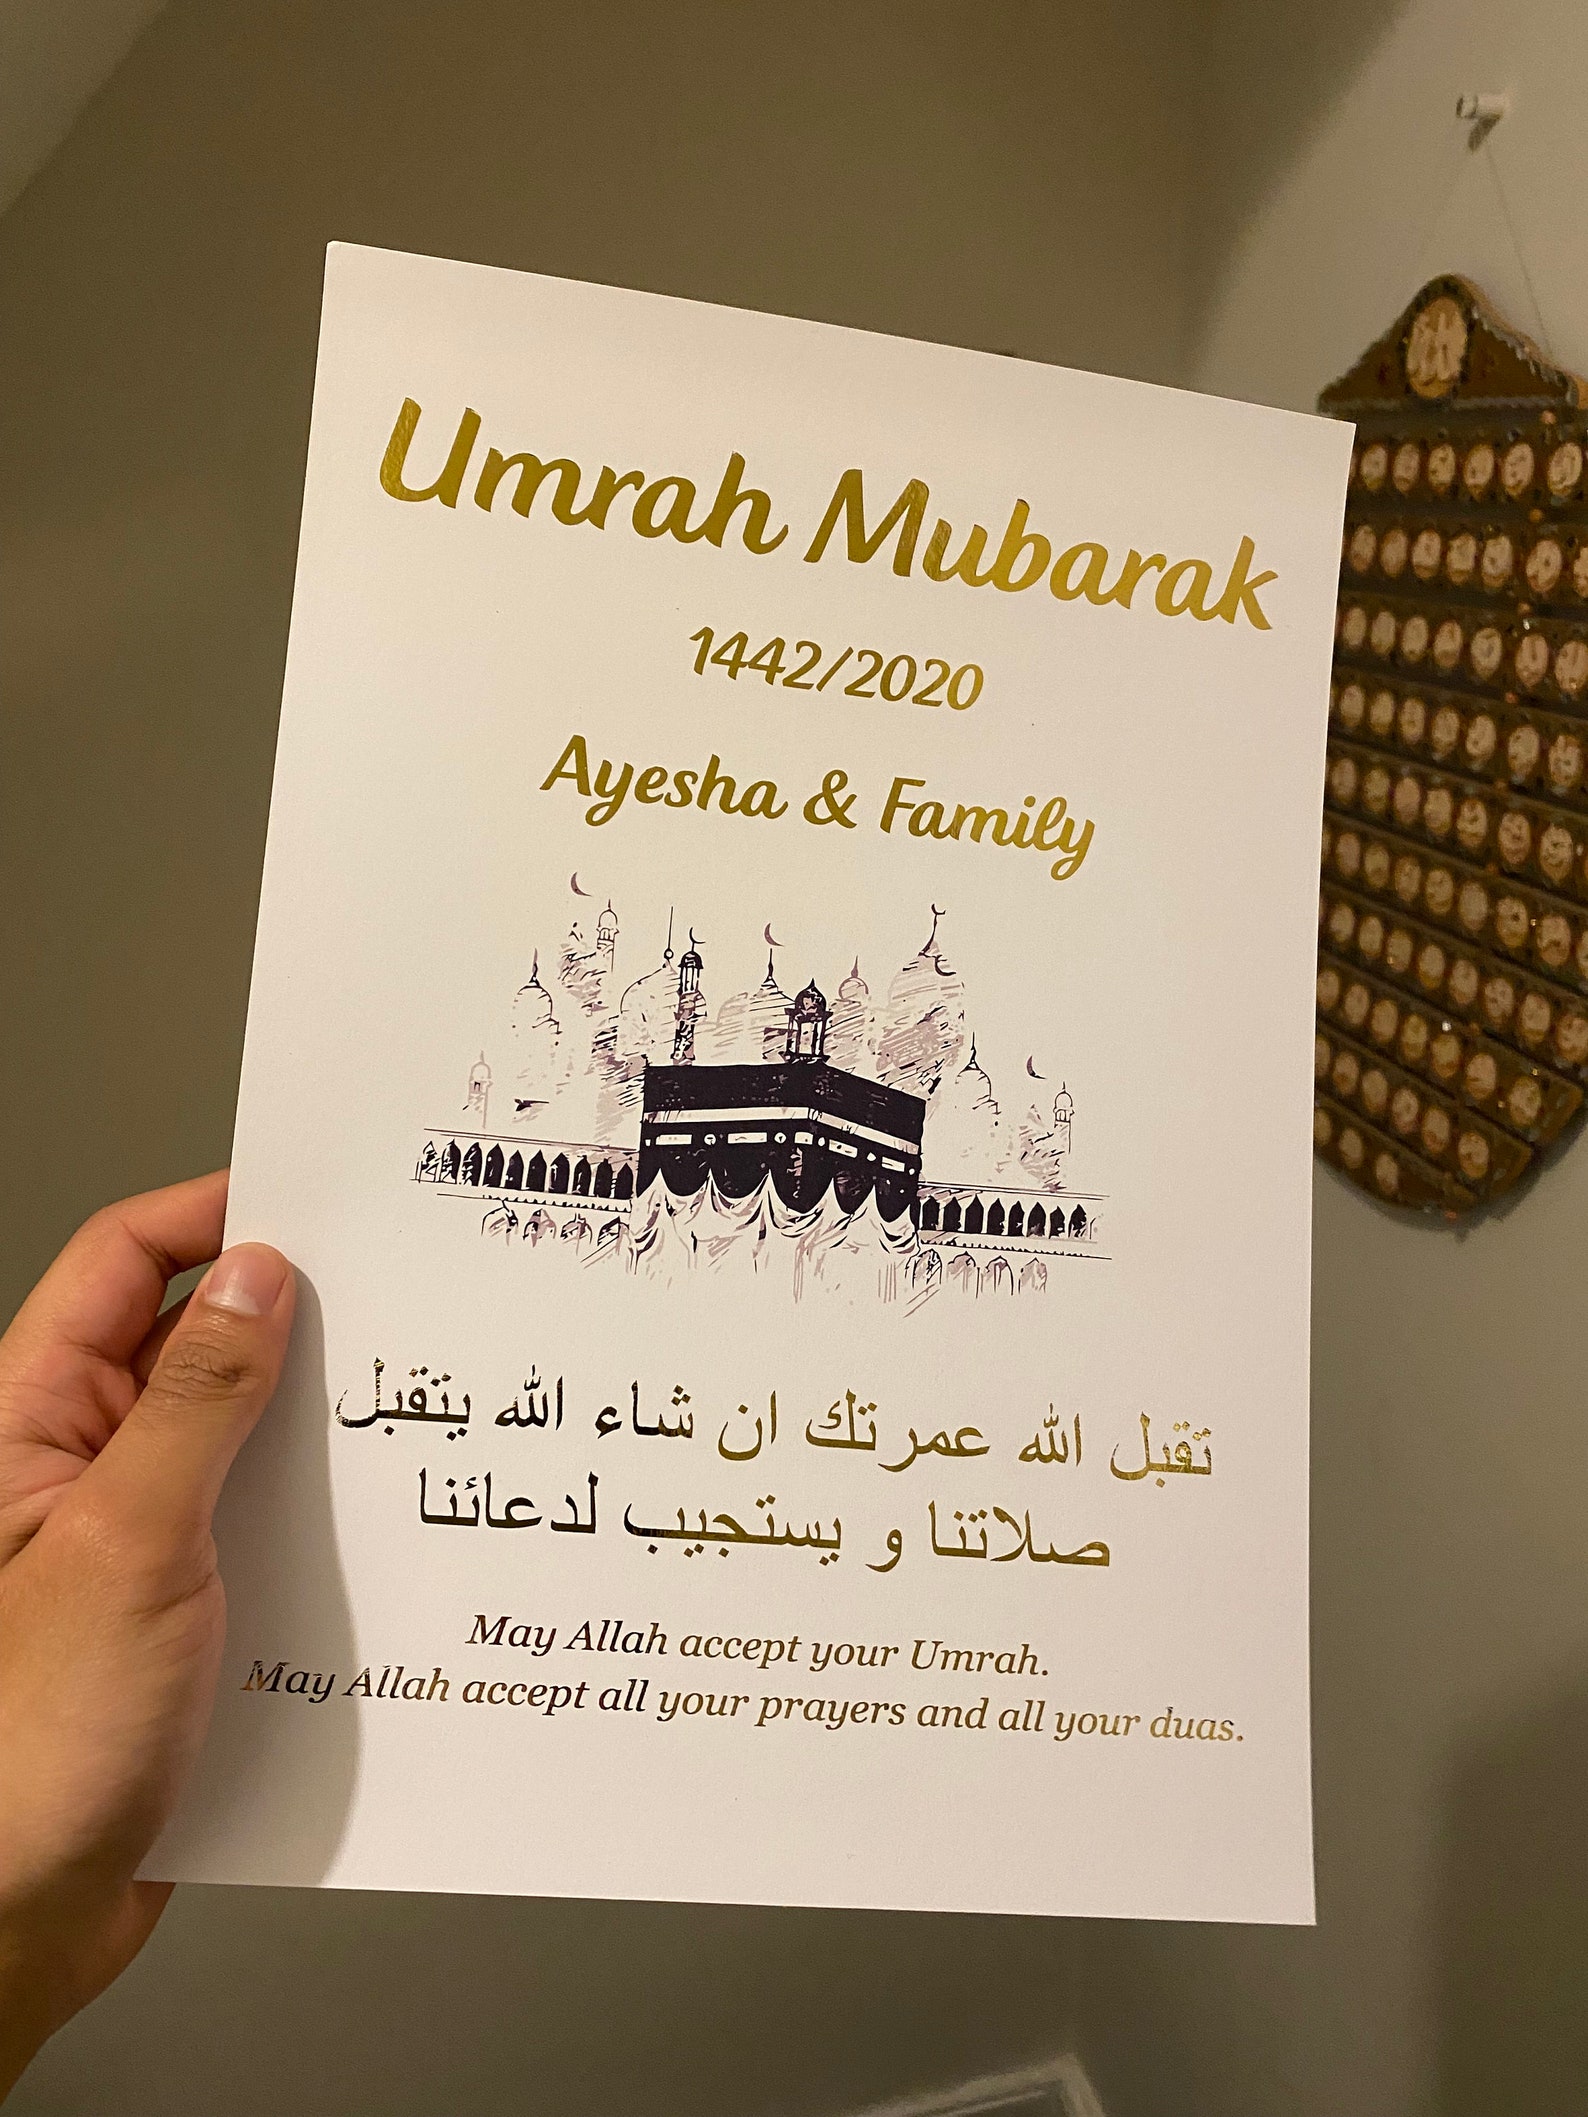 Umrah Mubarak
1442/2020
Ayesha & Family
تقبل الله عمرتك ان شاء الله يتقبل
صلاتنا و يستجيب لدعائنا
May Allah accept your Umrah.
May Allah accept all your prayers and all your duas.